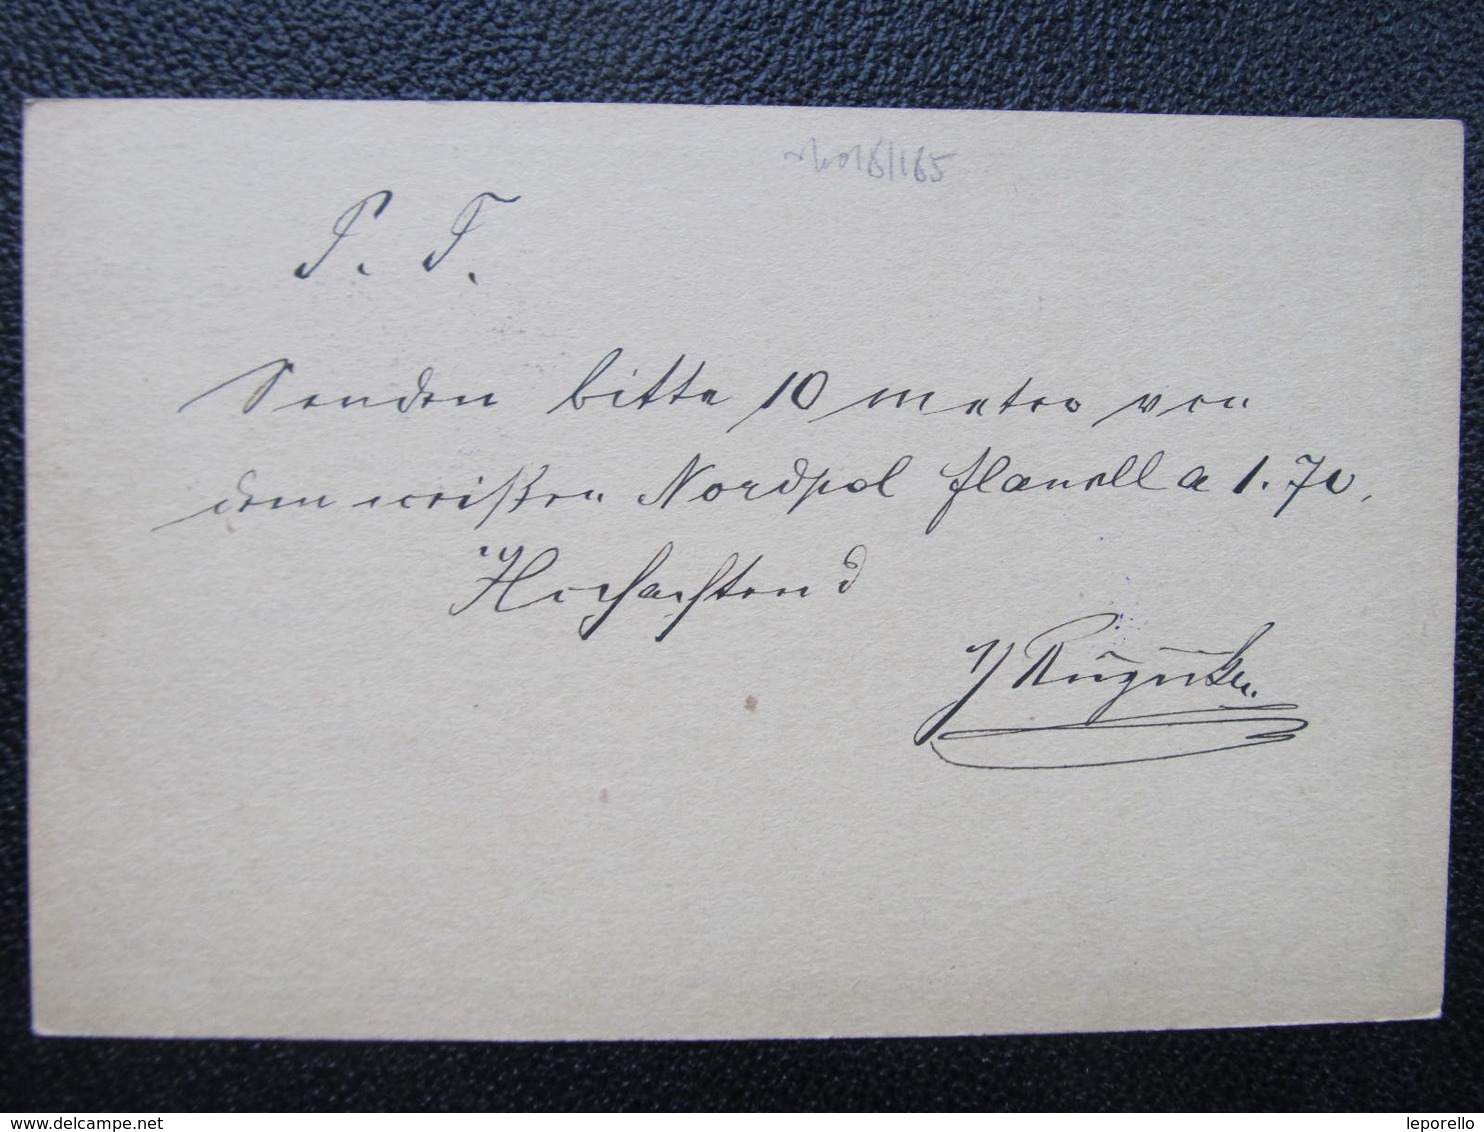 P. T.
Senden bitte 10 meter von
dem weißen Nordpol flanell a 1.70.
Hochachtend
delcampe.net
leporello